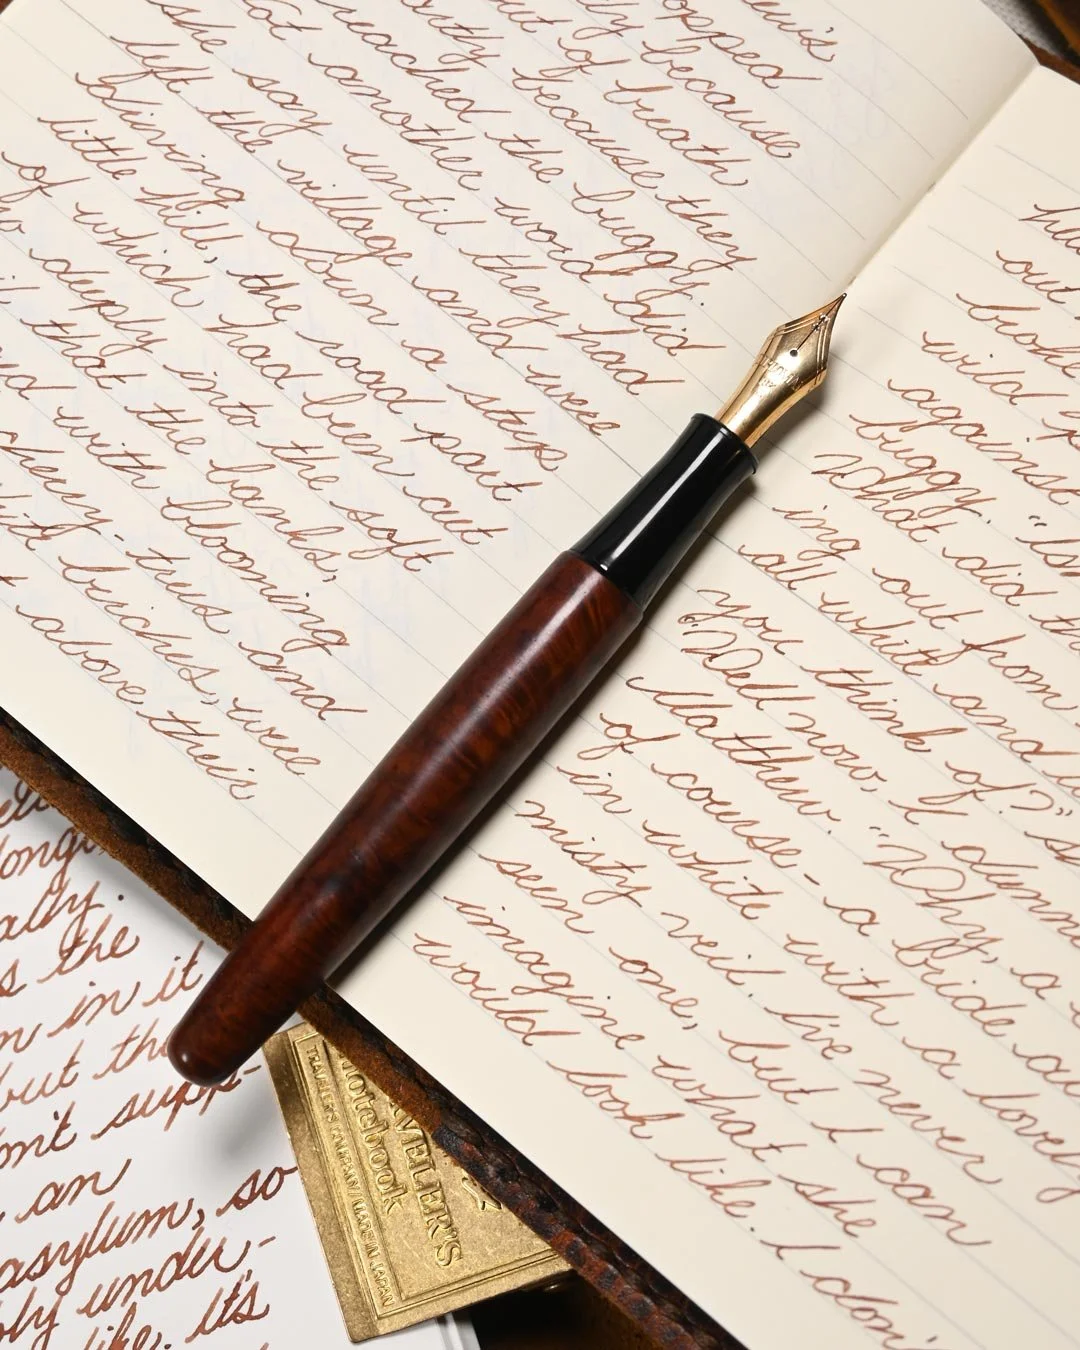 opped
because
out of breath
because they
reached the buggy.
not another word did
she say until they had
left the village and were
driving down a steep
little hill, the road part
of which had been cut
deeply into the soft
that the banks,
with blooming
cherry-trees and
birches, were
above their
out
broke
wild
against
buggy. "Isn
What did t
ing out from
all white and
you think of?" s
"Well now, I dunn
Matthew. "Why, a
of course- a bride a
in white with a lovely
misty veil. I've never
seen one, but I can
imagine what she
would look like. I don't
ally.
the
in it
but the
supp-
an
asylum, so
under-
like. It's
TRAVELER'S
notebook
TRAVELER'S COMPANY/MADE IN JAPAN